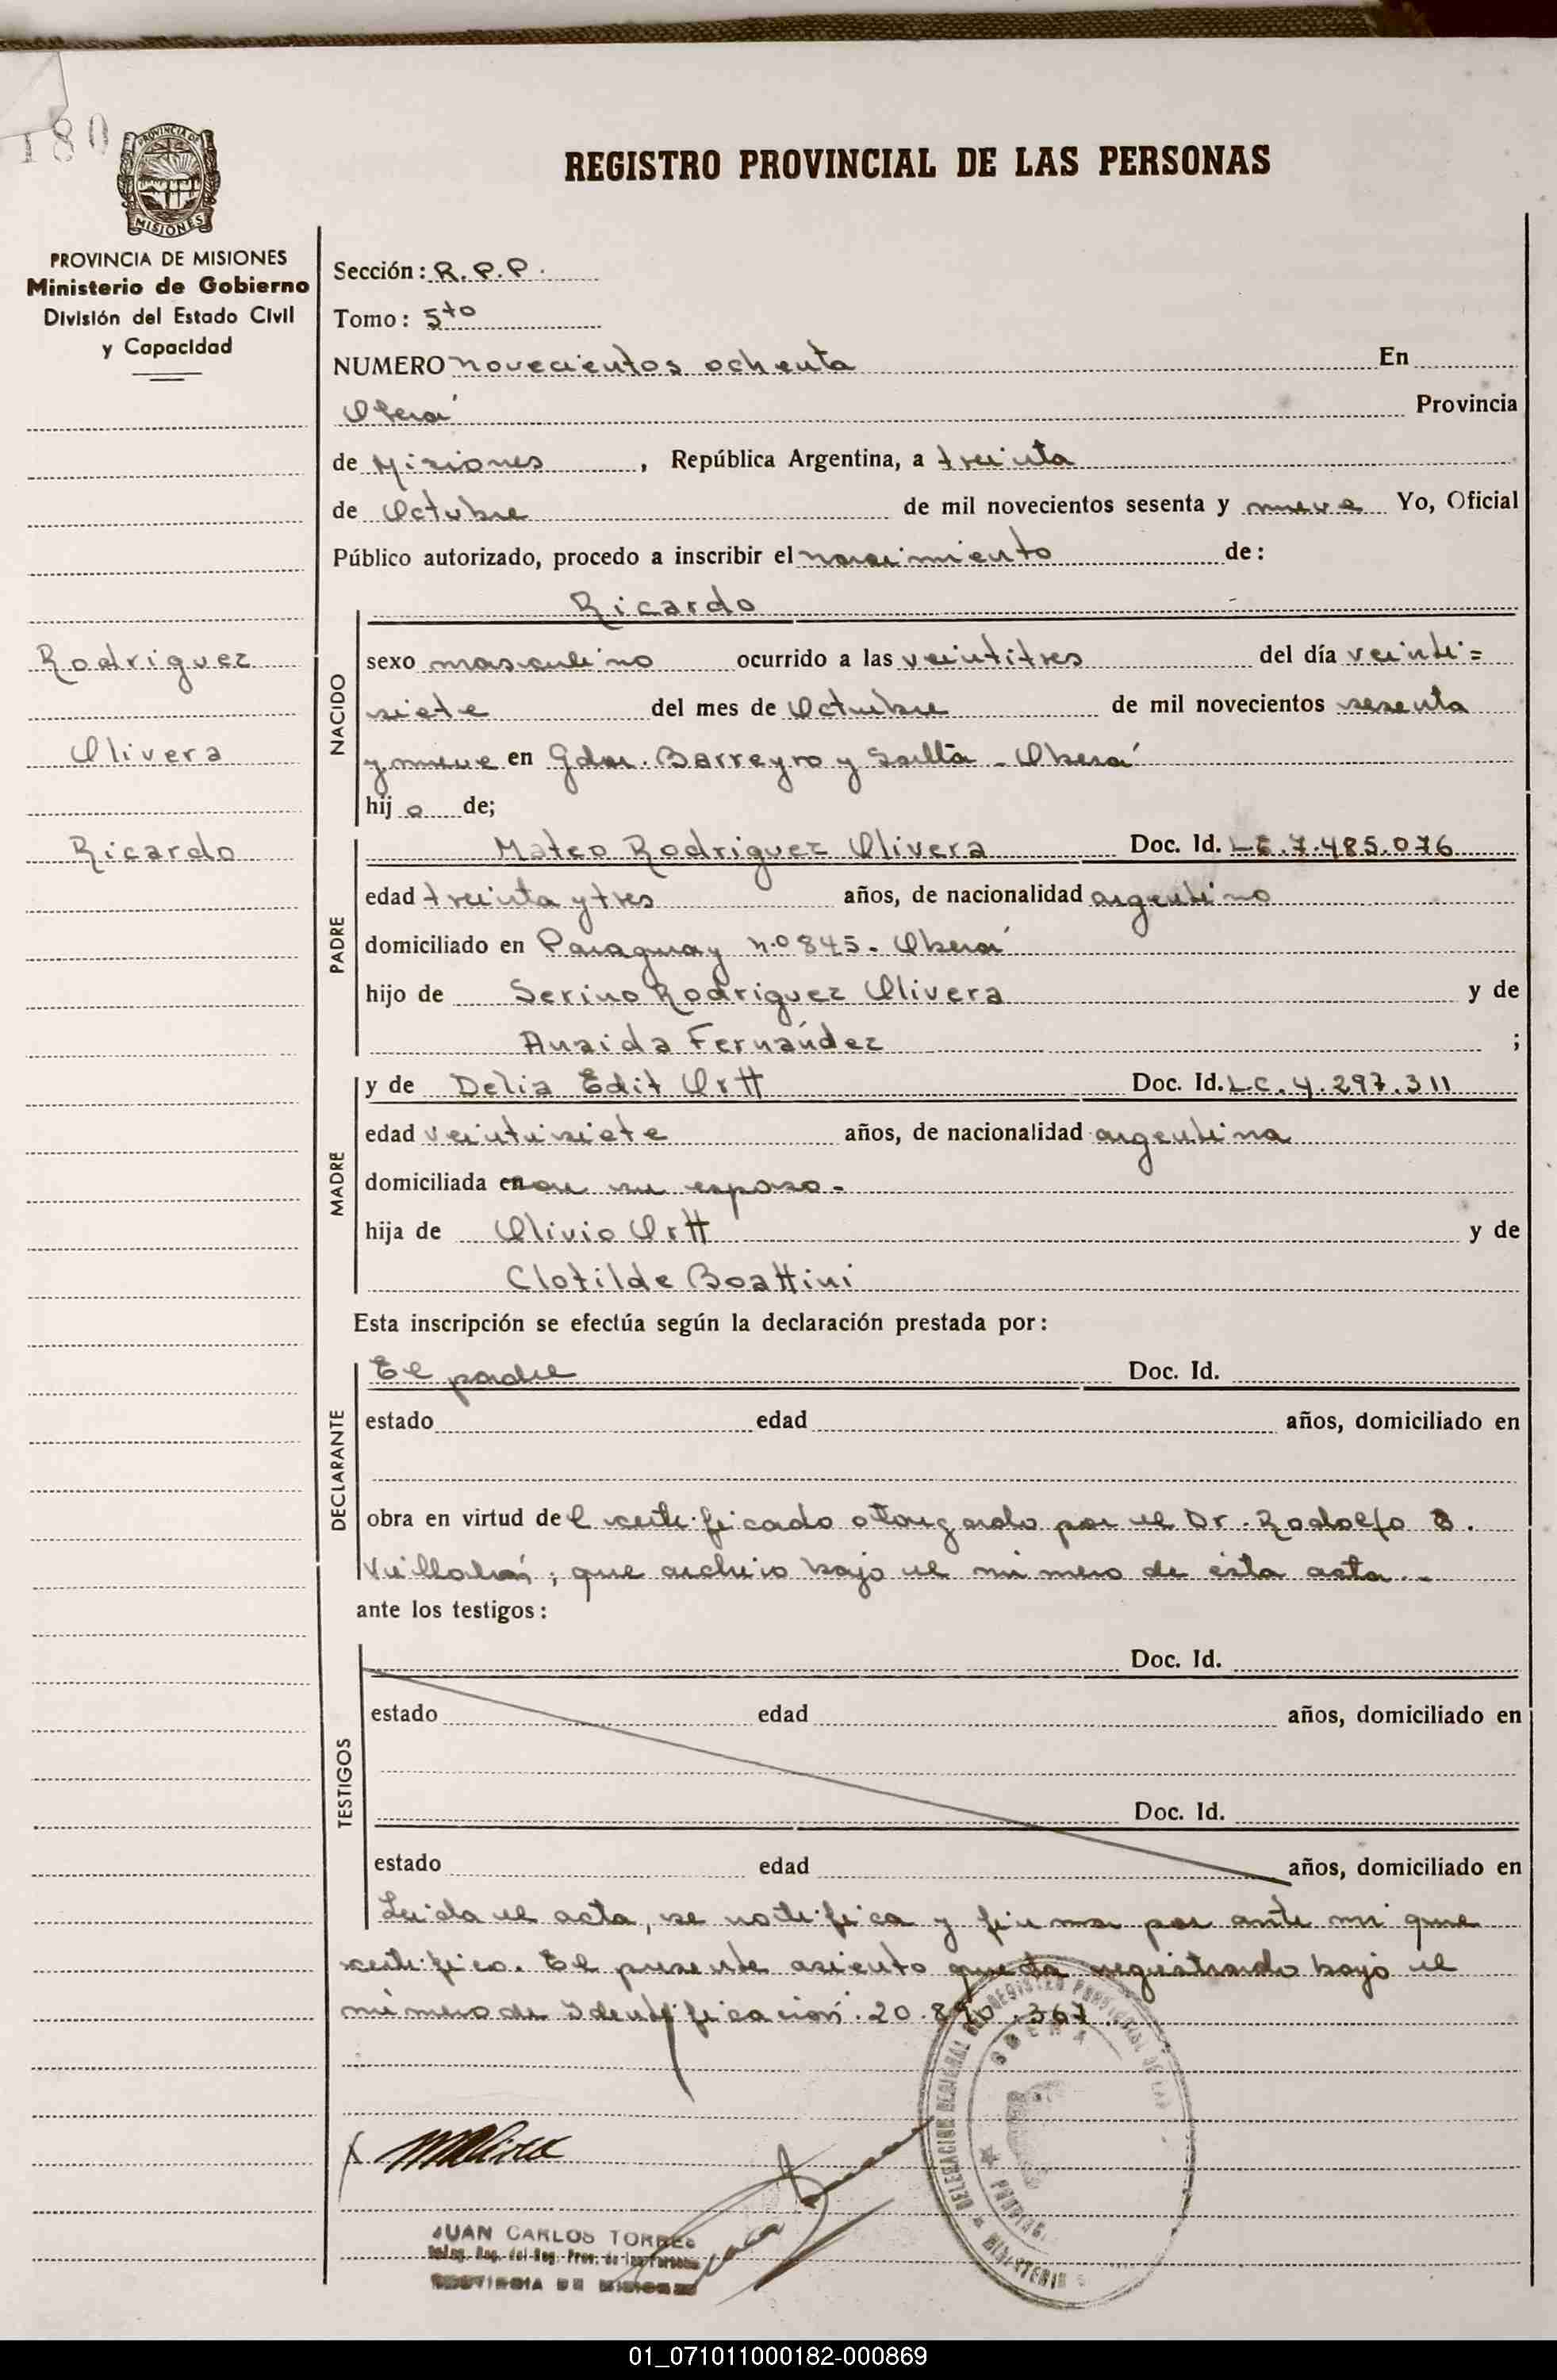 180
PROVINCIA DE
MISIONES
REGISTRO PROVINCIAL DE LAS PERSONAS
PROVINCIA DE MISIONES
Ministerio de Gobierno
División del Estado Civil
y Capacidad
Sección: R.P.P.
Tomo: 5to
NUMERO novecientos ochenta En
Oberá Provincia
de Misiones, República Argentina, a treinta
de Octubre de mil novecientos sesenta y nueve Yo, Oficial
Público autorizado, procedo a inscribir el nacimiento de:
Rodriguez
Olivera
Ricardo
NACIDO
Ricardo
sexo masculino ocurrido a las veintitres del día veinti=
siete del mes de Octubre de mil novecientos sesenta
y nueve en Gdor. Barreyro y Salta - Oberá
hijo de;
PADRE
Mateo Rodriguez Olivera Doc. Id. L.E. 7.485.076
edad treinta y tres años, de nacionalidad argentino
domiciliado en Paraguay n.o 845- Oberá
hijo de Serino Rodriguez Olivera y de
Anaida Fernández ;
MADRE
y de Delia Edit Ortt Doc. Id. L.C. 4.297.311
edad veintisiete años, de nacionalidad argentina
domiciliada en su esposo-
hija de Olivio Ortt y de
Clotilde Boattini
Esta inscripción se efectúa según la declaración prestada por:
DECLARANTE
El padre Doc. Id.
estado edad años, domiciliado en
obra en virtud del certificado otorgado por el Dr. Rodolfo B.
que archivo bajo el número de ésta acta.-
ante los testigos:
TESTIGOS
Doc. Id.
estado edad años, domiciliado en
Doc. Id.
estado edad años, domiciliado en
Leída el acta, se notifica y firma por ante mi que
certifico. El presente asiento queda registrado bajo el
número de Identificación: 20.890.367.
DELEGACION REGIONAL DEL REGISTRO PROVINCIAL DE LAS
OBERA
MINISTERIO
JUAN CARLOS TORRES
PROVINCIA DE MISIONES
01_071011000182-000869